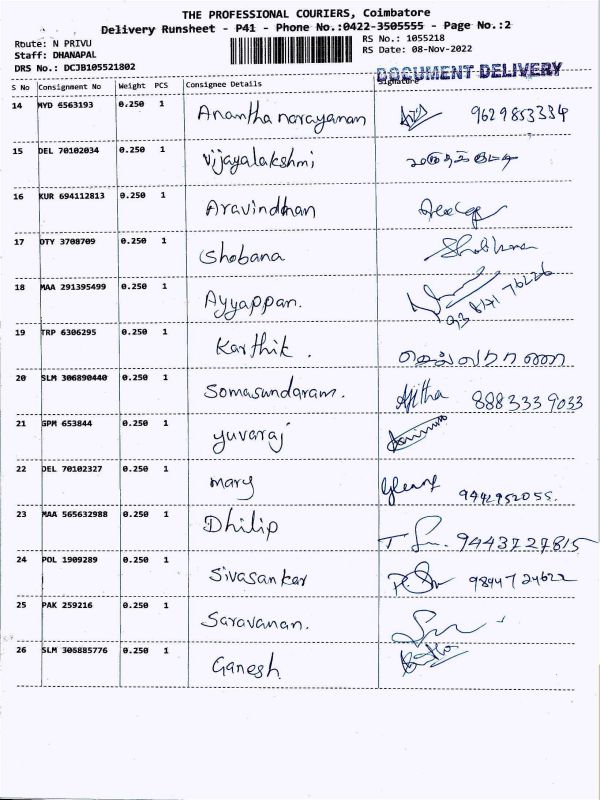 THE PROFESSIONAL COURIERS, Coimbatore
Delivery Runsheet - P41 - Phone No.:0422-3505555 - Page No.:2
Route: N PRIVU RS No.: 1055218
Staff: DHANAPAL RS Date: 08-Nov-2022
DRS No.: DCJB105521802
DOCUMENT DELIVERY
S No Consignment No Weight PCS Consignee Details Signature
14 MYD 6563193 0.250 1 Anantha narayanan 9629853334
15 DEL 70102034 0.250 1 Vijayalakshmi
16 KUR 694112813 0.250 1 Aravindhan
17 OTY 3708709 0.250 1 Shobana Shobana
18 MAA 291395499 0.250 1 Ayyappan.
19 TRP 6306295 0.250 1 Karthik.
20 SLM 306890440 0.250 1 Somasundaram. Ajitha 8883339033
21 GPM 653844 0.250 1 yuvaraj
22 DEL 70102327 0.250 1 mary 9442952055.
23 MAA 565632988 0.250 1 Dhilip 9443727815
24 POL 1909289 0.250 1 Sivasankar 9844724622
25 PAK 259216 0.250 1 Saravanan.
26 SLM 306885776 0.250 1 Ganesh